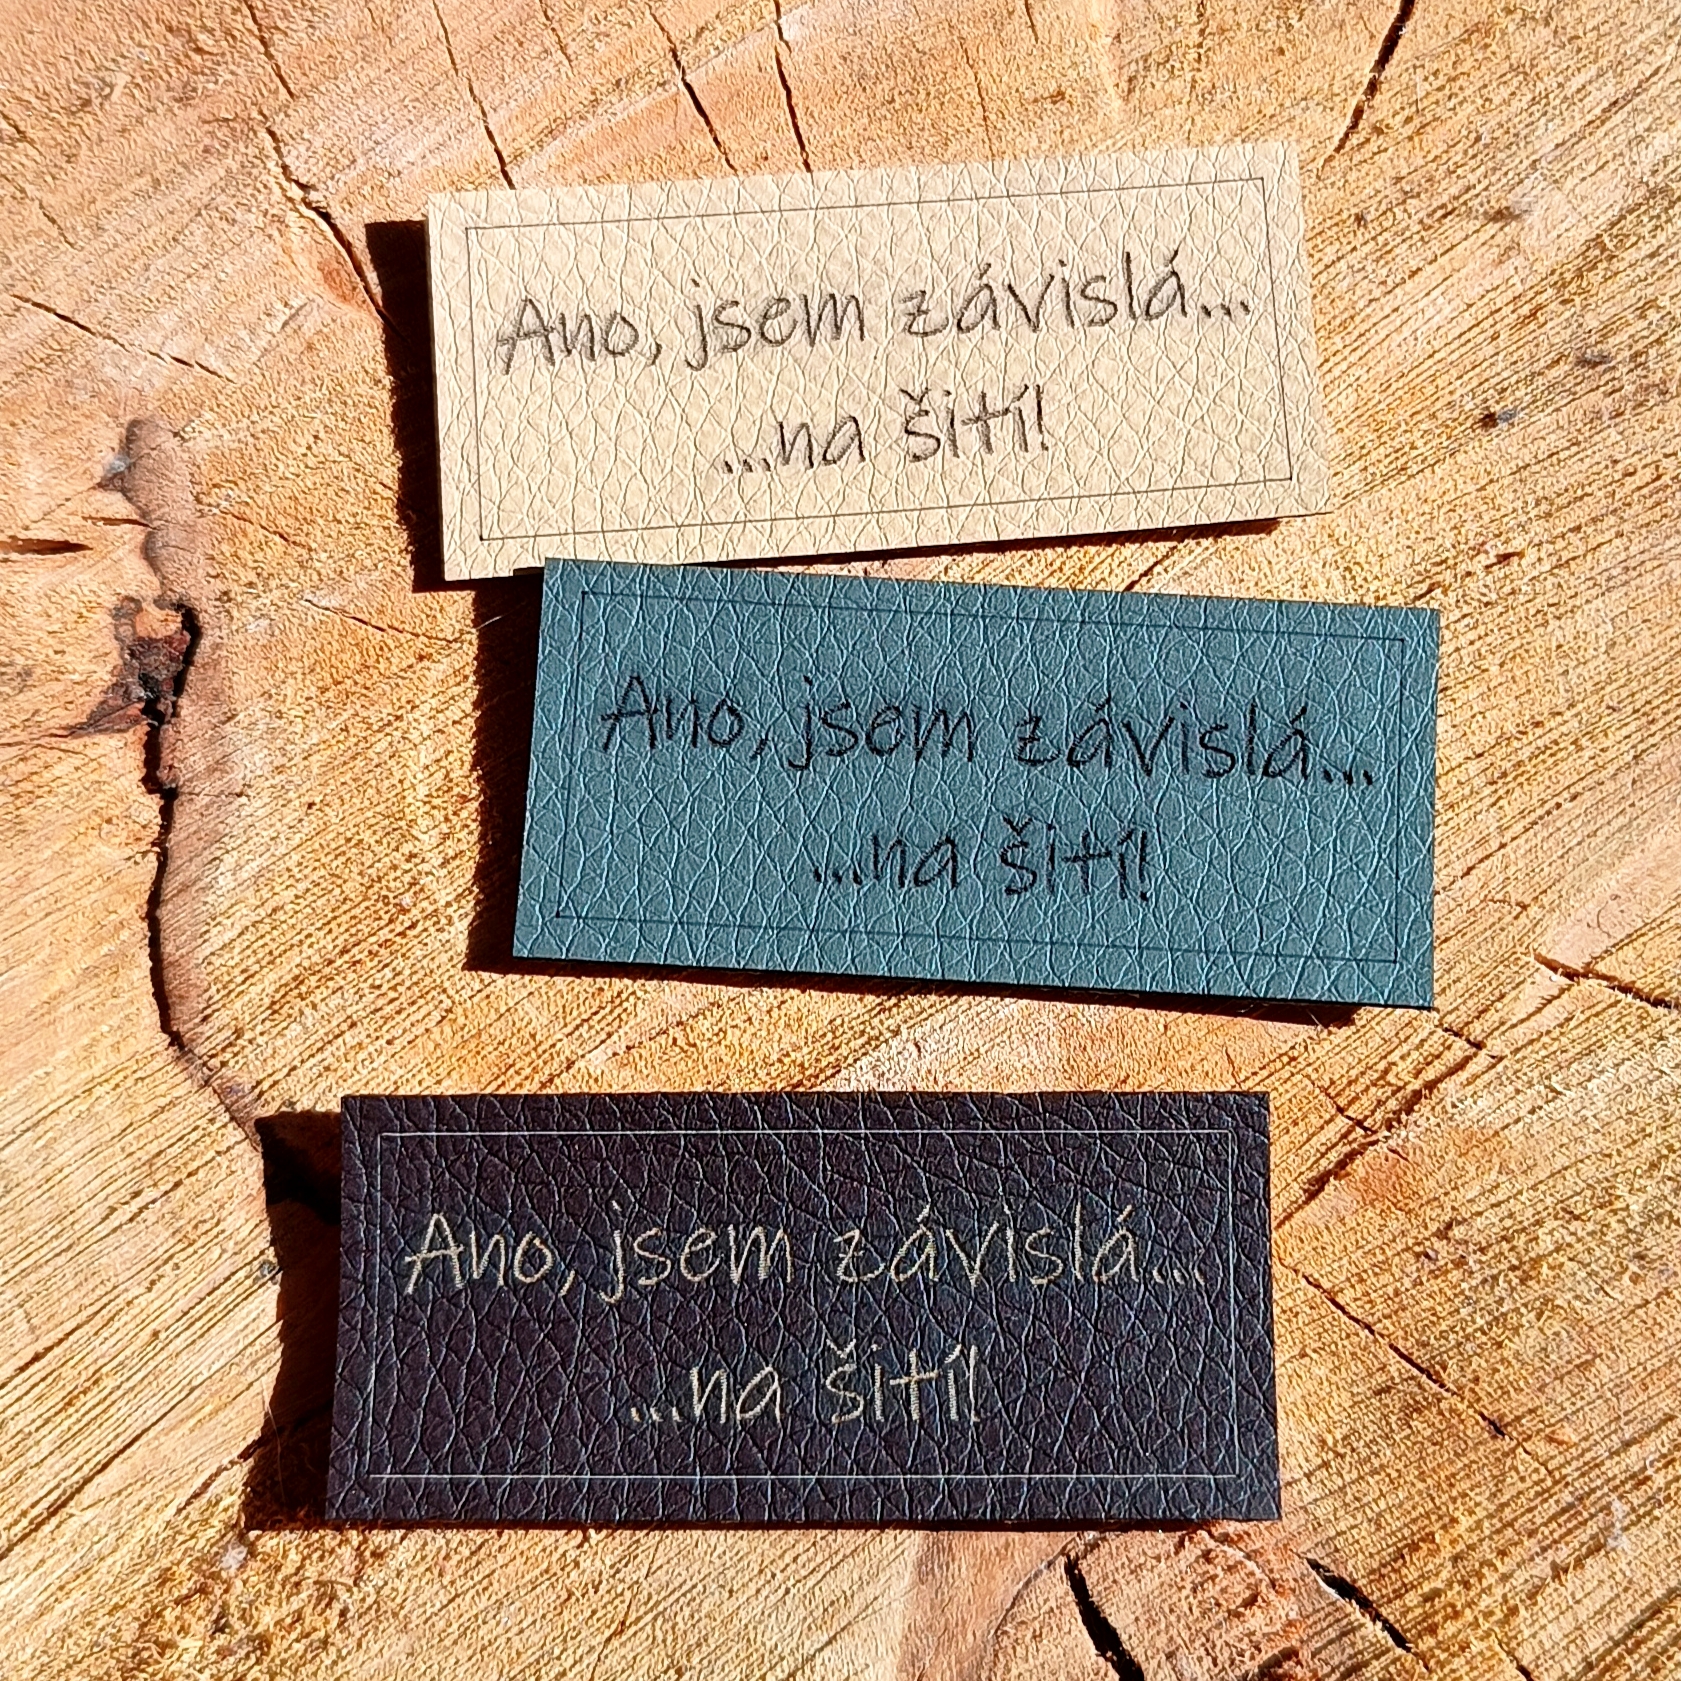 Ano, jsem závislá...
...na šití!
Ano, jsem závislá...
...na šití!
Ano, jsem závislá...
...na šití!